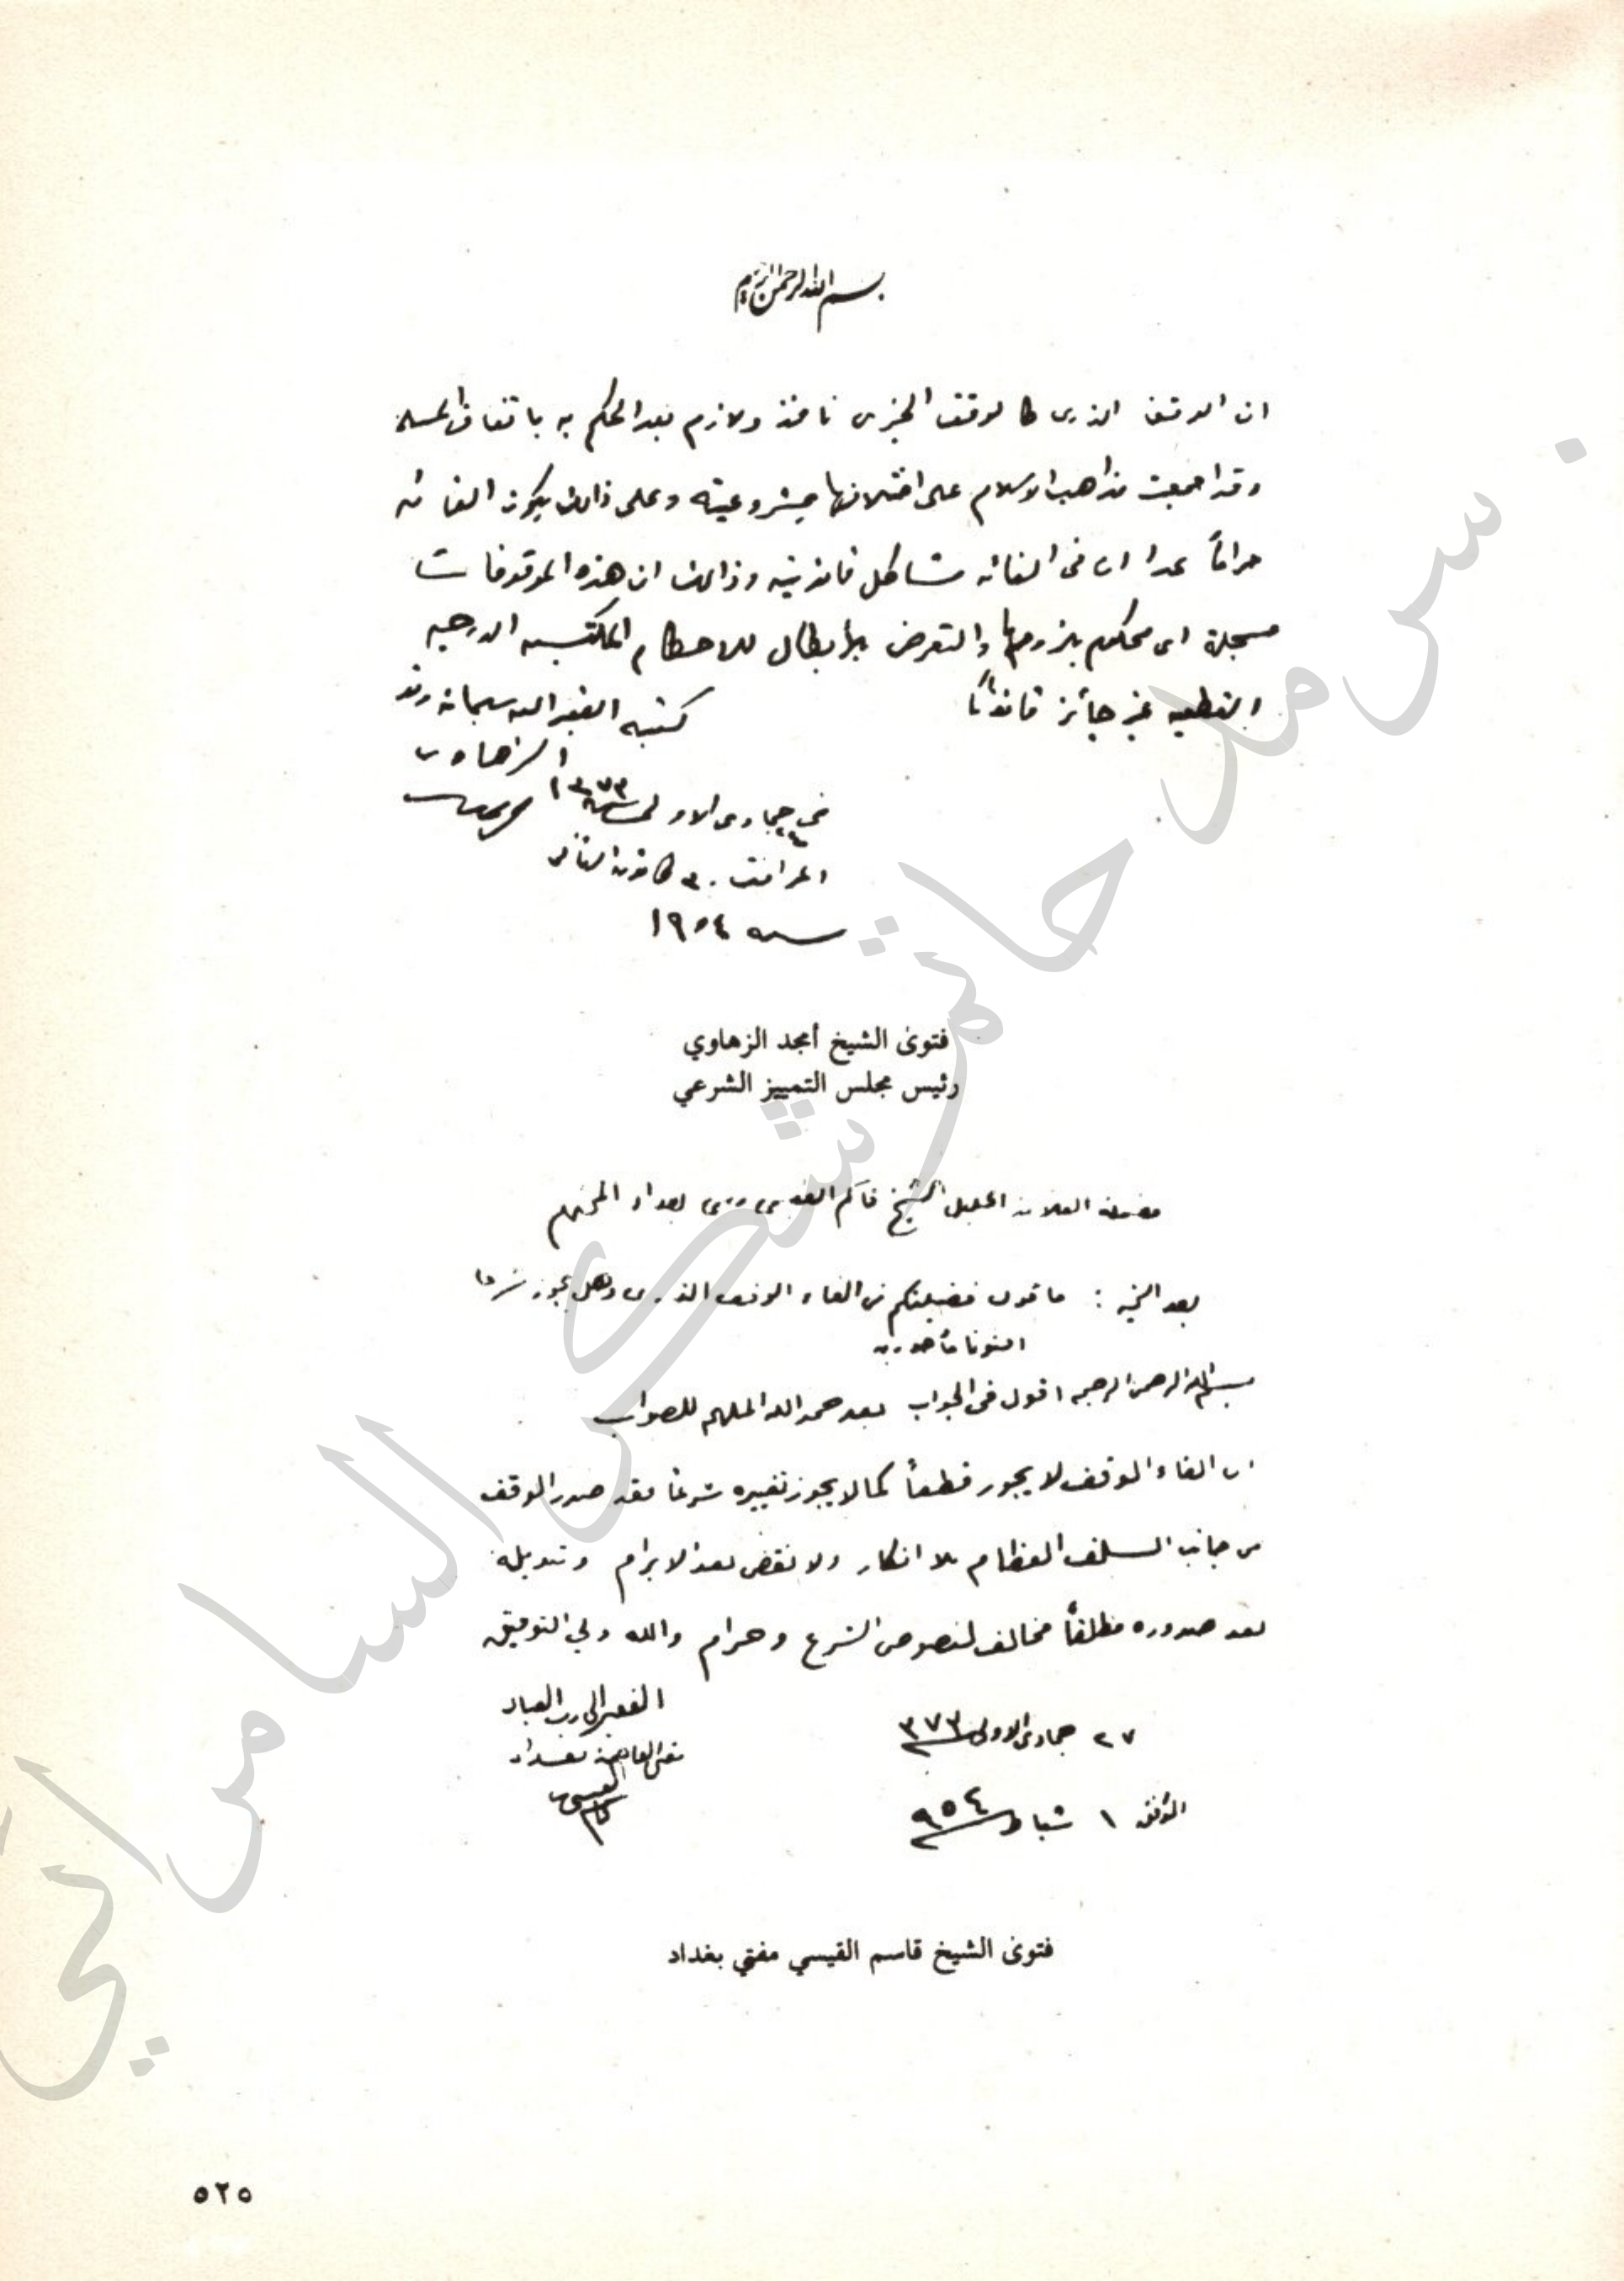 بسم الله الرحمن الرحيم
ان الوقف الذري كالوقف الخيري نافذ ولازم بعد الحكم به باتفاق
وقد اجمعت مذاهب الاسلام على اختلافها بمشروعيته وعلى ذالك يكون الغائه
حراماً عدا ان في الغائه مشاكل قانونية وذالك ان هذه الموقوفات
مسجلة اى محكوم بلزومها والتعرض بالأبطال للاحكام المكتسبه الدرجه
القطعيه غير جائز قانوناً
كتبه الفقير اليه سبحانه وتعـ
الزهاوى
في جمادى الاولى سنه ١٣٧٣
الموافق ٣٠ كانون الثاني
سنه ١٩٥٤
فتوى الشيخ أمجد الزهاوي
رئيس مجلس التمييز الشرعي
فضيلة العلامه الجليل الشيخ قاسم القيسي مفتى بغداد المحترم
بعد التحيه : ما قول فضيلتكم في الغاء الوقف الذري وهل يجوز شرعا
افتونا مأجورين
بسم الله الرحمن الرحيم اقول في الجواب بعد حمد الله الملهم للصواب
ان الغاء الوقف لا يجوز قطعاً كما لا يجوز تغييره شرعاً فقد صدر الوقف
من جانب السلف العظام بلا انكار ولا نقض بعد الابرام وتبديله
بعد صدوره مطلقاً مخالف لنصوص الشرع وحرام والله ولي التوفيق
الفقير الى رب العباد
مفتى العاصمة بغداد
قاسم القيسي
٢٧ جمادى الاولى ٣٧٣
الموافق ١ شباط ٩٥٤
فتوى الشيخ قاسم القيسي مفتي بغداد
٥٢٥
سرمد حاتم شكر السامرائي